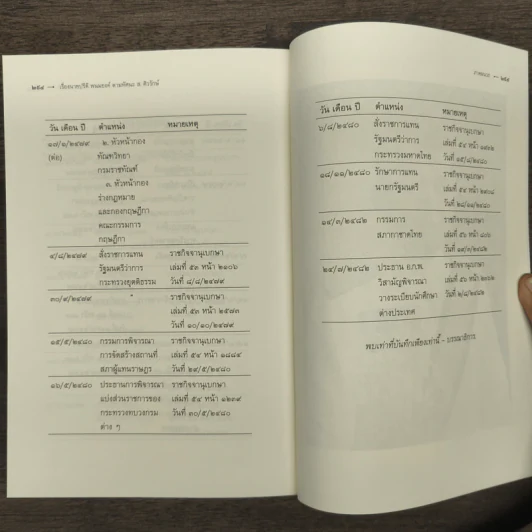 ๒๕๔ — เรื่องนายปรีดี พนมยงค์ ตามทัศนะ ส. ศิวรักษ์
วัน เดือน ปี ตำแหน่ง หมายเหตุ
๑๘/๖/๒๔๗๙ ๒. หัวหน้ากอง
(ต่อ) ทัณฑวิทยา
กรมราชทัณฑ์
๓. หัวหน้ากอง
ร่างกฎหมาย
และกองกฤษฎีกา
คณะกรรมการ
กฤษฎีกา
๔/๘/๒๔๗๙ สั่งราชการแทน ราชกิจจานุเบกษา
รัฐมนตรีว่าการ เล่มที่ ๕๓ หน้า ๒๑๐๖
กระทรวงยุตติธรรม วันที่ ๘/๘/๒๔๗๙
๓๐/๙/๒๔๗๙ ราชกิจจานุเบกษา
เล่มที่ ๕๓ หน้า ๒๕๗๓
วันที่ ๑๐/๑๐/๒๔๗๙
๑๕/๕/๒๔๘๐ กรรมการพิจารณา ราชกิจจานุเบกษา
การจัดสร้างสถานที่ เล่มที่ ๕๔ หน้า
สภาผู้แทนราษฎร วันที่ ๒๙/๕/๒๔๘๐
๑๖/๕/๒๔๘๐ ประธานการพิจารณา ราชกิจจานุเบกษา
แบ่งส่วนราชการของ เล่มที่ ๕๔ หน้า ๑๒๓๙
กระทรวงทบวงกรม วันที่ ๓๐/๕/๒๔๘๐
ต่าง ๆ
ภาคผนวก — ๒๕๕
วัน เดือน ปี ตำแหน่ง หมายเหตุ
๖/๘/๒๔๘๐ สั่งราชการแทน ราชกิจจานุเบกษา
รัฐมนตรีว่าการ เล่มที่ ๕๔ หน้า
กระทรวงมหาดไทย วันที่ ๑๕/๘/๒๔๘๐
๑๘/๑๑/๒๔๘๐ รักษาการแทน ราชกิจจานุเบกษา
นายกรัฐมนตรี เล่มที่ ๕๔ หน้า
วันที่ ๒๘/๑๑/๒๔๘๐
๑๔/๓/๒๔๘๒ กรรมการ ราชกิจจานุเบกษา
สภากาชาดไทย เล่มที่ ๕๖ หน้า
วันที่
๒๔/๗/๒๔๘๒ ประธาน อ.ก.พ. ราชกิจจานุเบกษา
วิสามัญพิจารณา เล่มที่ ๕๖ หน้า
วางระเบียบนักศึกษา วันที่ ๒/๘/๒๔๘๒
ต่างประเทศ
พบเท่าที่บันทึกเพียงเท่านี้ – บรรณาธิการ